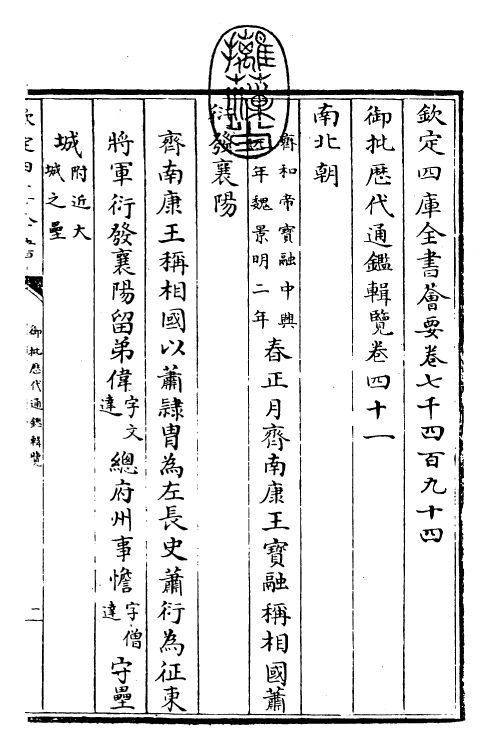 欽定四庫全書薈要卷七千四百九十四
御批歷代通鑑輯覽卷四十一
南北朝
齊和帝寶融中興
元年魏景明二年
春正月齊南康王寶融稱相國蕭
衍發襄陽
齊南康王稱相國以蕭隸胄為左長史蕭衍為征東
將軍衍發襄陽留弟偉字文達總府州事憺字僧達守壘
城附近大城之壘
御批歷代通鑑輯覽
二